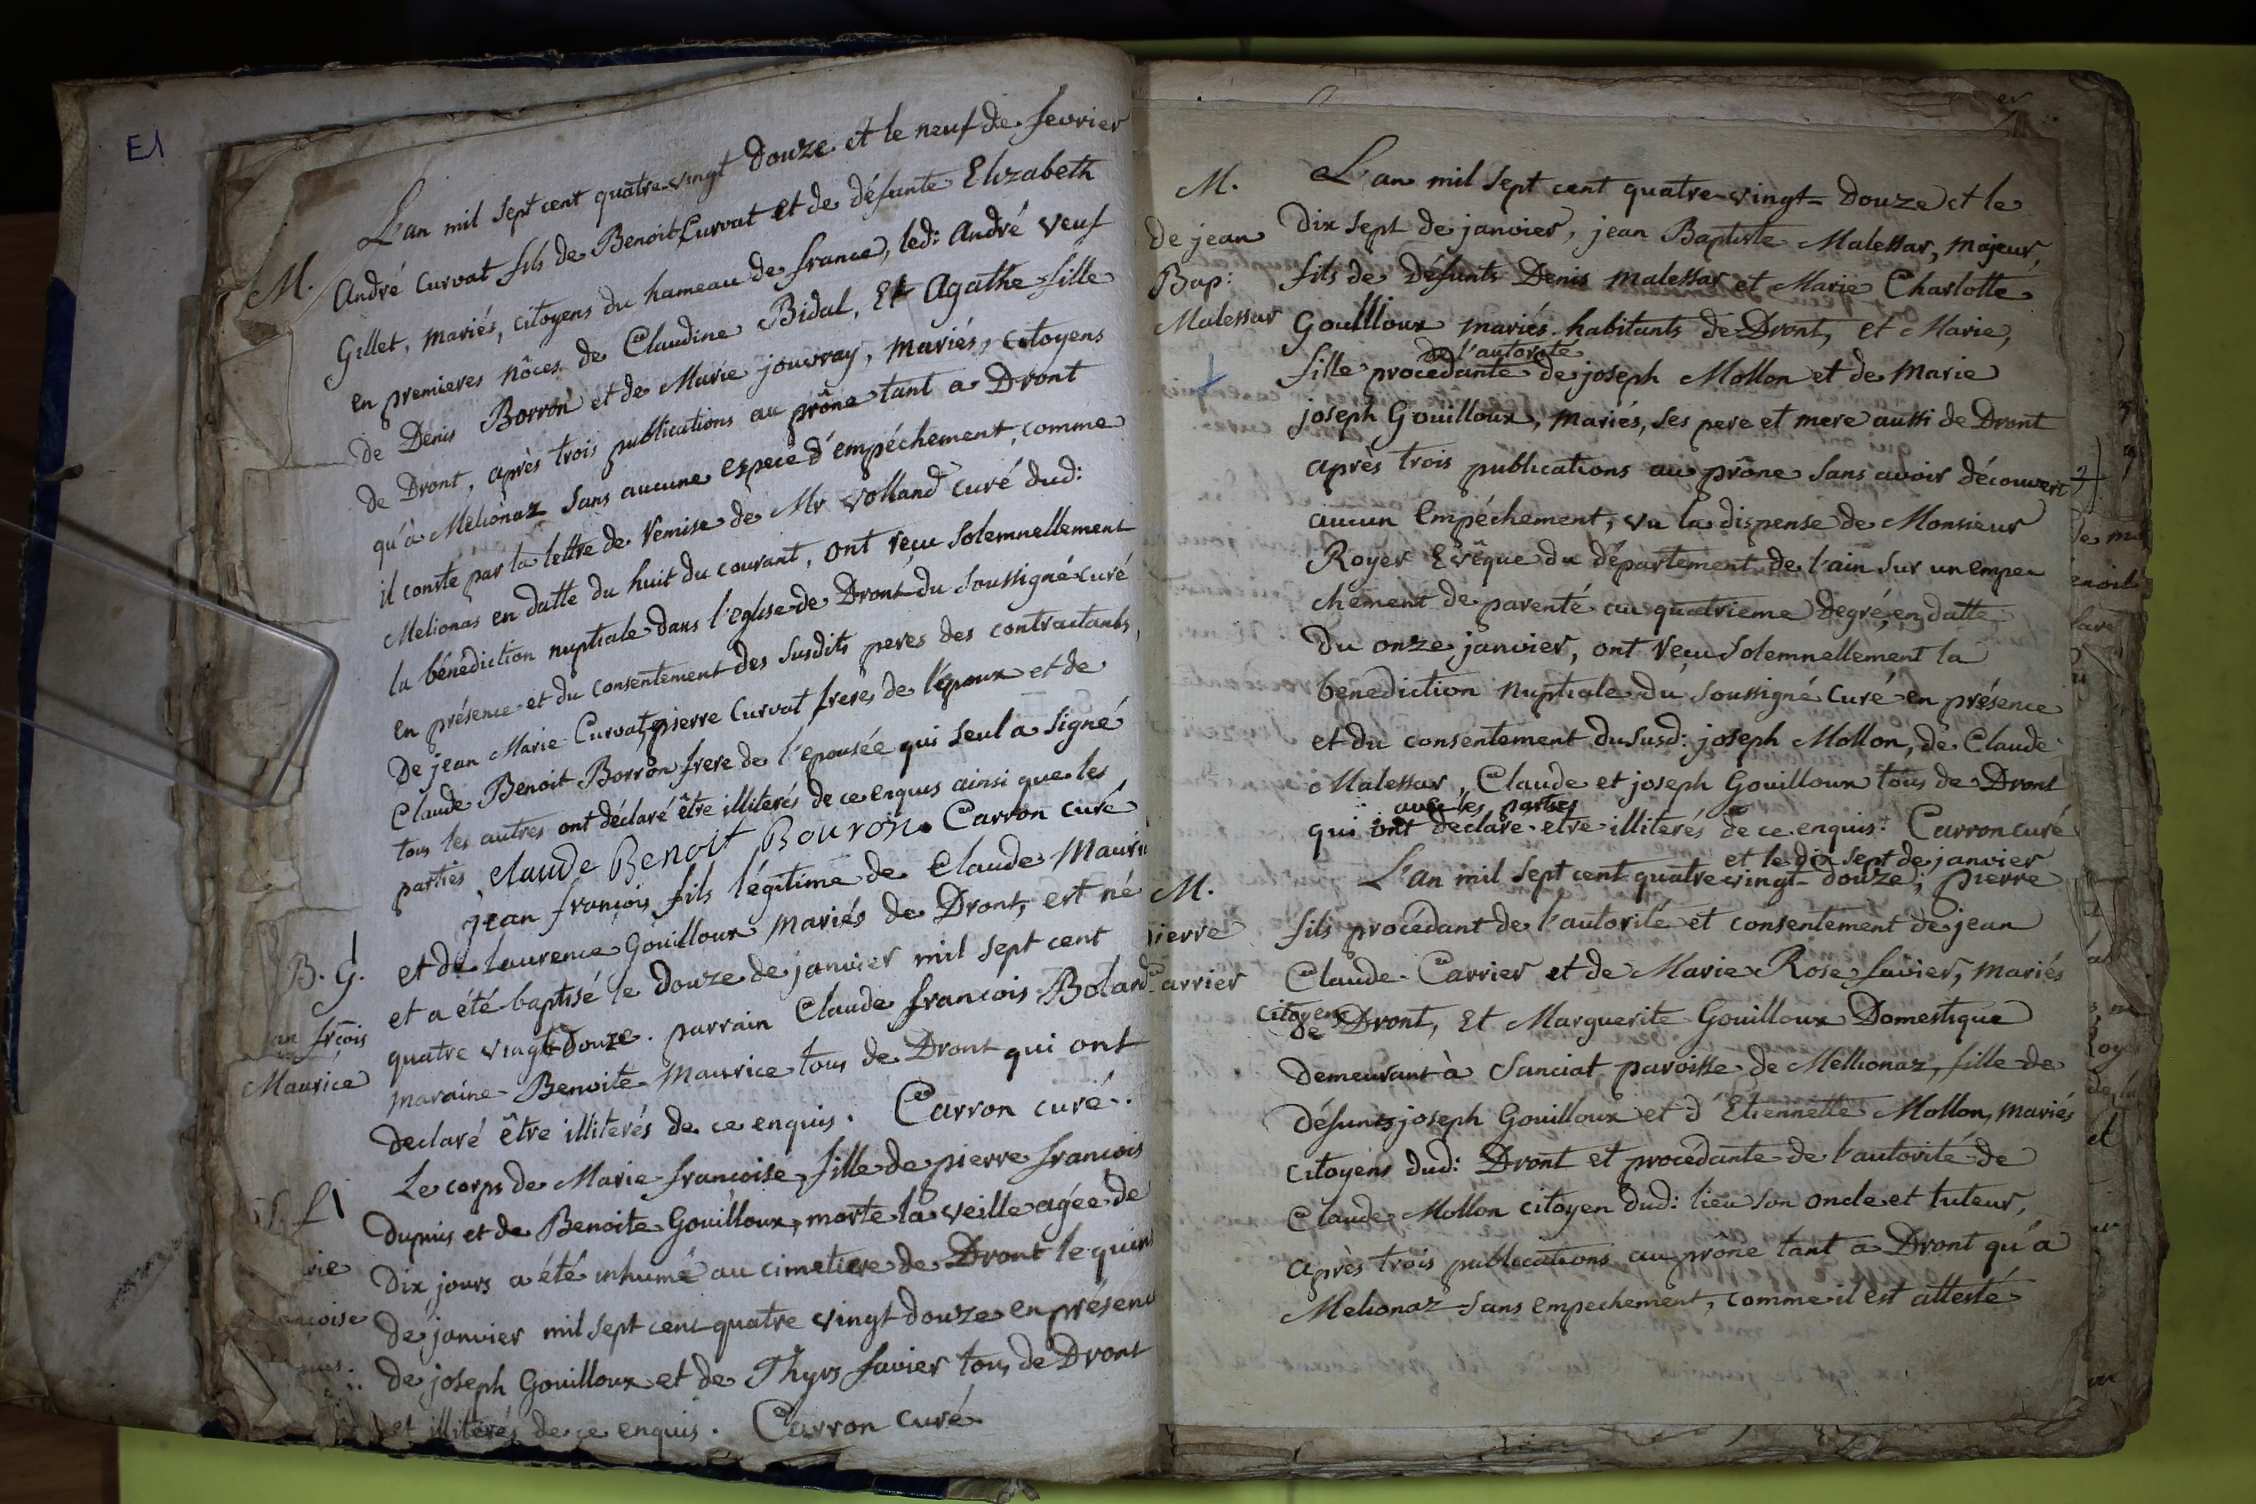 E1
L'an mil sept cent quatre-vingt douze et le neuf de fevrier
M.
André Curvat fils de Benoit Curvat et de défunte Elizabeth
Gillet, mariés, citoyens du hameau de france, led: André veuf
en premieres nôces de Claudine Bidal, Et Agathe fille
de Denis Borron et de Marie jouvray, mariés, citoyens
de Dront, après trois publications au prône tant a Dront
qu'à Melionaz sans aucune espece d'empéchement, comme
il conste par la lettre de remise de Mr Volland curé dud:
Melionas en datte du huit du courant, ont reçu solemnellement
la bénédiction nuptiale dans l'eglise de Dront du soussigné curé
en présence et du consentement des susdits peres des contractants,
De jean Marie Curvat, pierre Curvat freres de l'epoux et de
Claude Benoit Borron frere de l'epousée qui seul a signé
tous les autres ont déclaré être illiterés de ce enquis ainsi que les
parties. Claude Benoit Bouron. Carron curé
jean françois fils légitime de Claude Mauri
B. G.
et de laurence Gouilloux mariés de Dront, est né
et a été baptisé le douze de janvier mil sept cent
an frçois
quatre vingt douze. parrain Claude francois Bolard
Maurice
maraine Benoite Maurice tous de Dront qui ont
declaré être illiterés de ce enquis. Carron curé.
Le corps de Marie françoise, fille de pierre francois
dupuis et de Benoite Gouilloux, morte la veille agée de
rie
Dix jours a été inhumé au cimetiere de Dront le quin
coise
de janvier mil sept cent quatre vingt douze en présen
de joseph Gouilloux et de Thyrs favier tous de Dront
et illiterés de ce enquis. Carron curé
M.
L'an mil sept cent quatre-vingt-douze et le
de jean
Dix sept de janvier, jean Baptiste Malessar, majeur,
Bap:
fils de défunts Denis malessar et Marie Charlotte
Malessar
Gouillioux mariés habitants de Dront, et Marie,
de l'autorité
fille procedante de joseph Mollon et de Marie
joseph Gouilloux, mariés, ses pere et mere aussi de Dront
après trois publications au prône sans avoir découvert
aucun empéchement, vu la dispense de Monsieur
Royer Evêque du département de l'ain sur un empe
chement de parenté au quatrieme degré, en datte
du onze janvier, ont reçu solemnellement la
benediction nuptiale du soussigné curé en présence
et du consentement du susd: joseph Mollon, de Claude
Malessar, Claude et joseph Gouilloux tous de Dront
avec les parties
qui ont declaré etre illiterés de ce enquis: Carron curé
et le dix sept de janvier
L'an mil sept cent quatre vingt-douze, pierre
M.
ierre
fils procédant de l'autorité et consentement de jean
arrier
Claude Carrier et de Marie Rose favier, mariés
citoyens
de Dront, Et Marguerite Gouilloux Domestique
demeurant à Sanciat paroisse de Mellionaz, fille de
défunts joseph Gouilloux et d'Etiennette Mollon, mariés
citoyens dud: Dront et procedante de l'autorité de
Claude Mollon citoyen dud: lieu son oncle et tuteur,
après trois publications au prône tant a Dront qu'a
Melionaz sans empechement, comme il est attesté